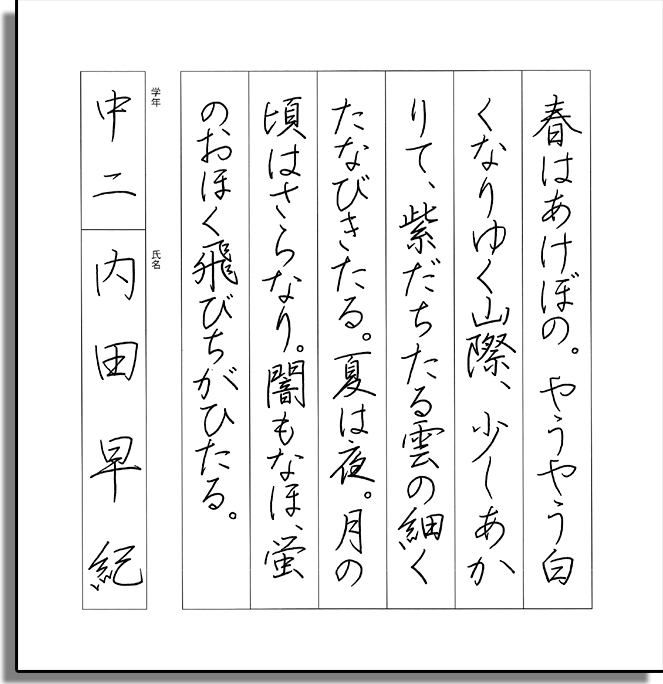 春はあけぼの。やうやう白
くなりゆく山際、少しあか
りて、紫だちたる雲の細く
たなびきたる。夏は夜。月の
頃はさらなり。闇もなほ、蛍
のおほく飛びちがひたる。
学年
中二
氏名
内田早紀